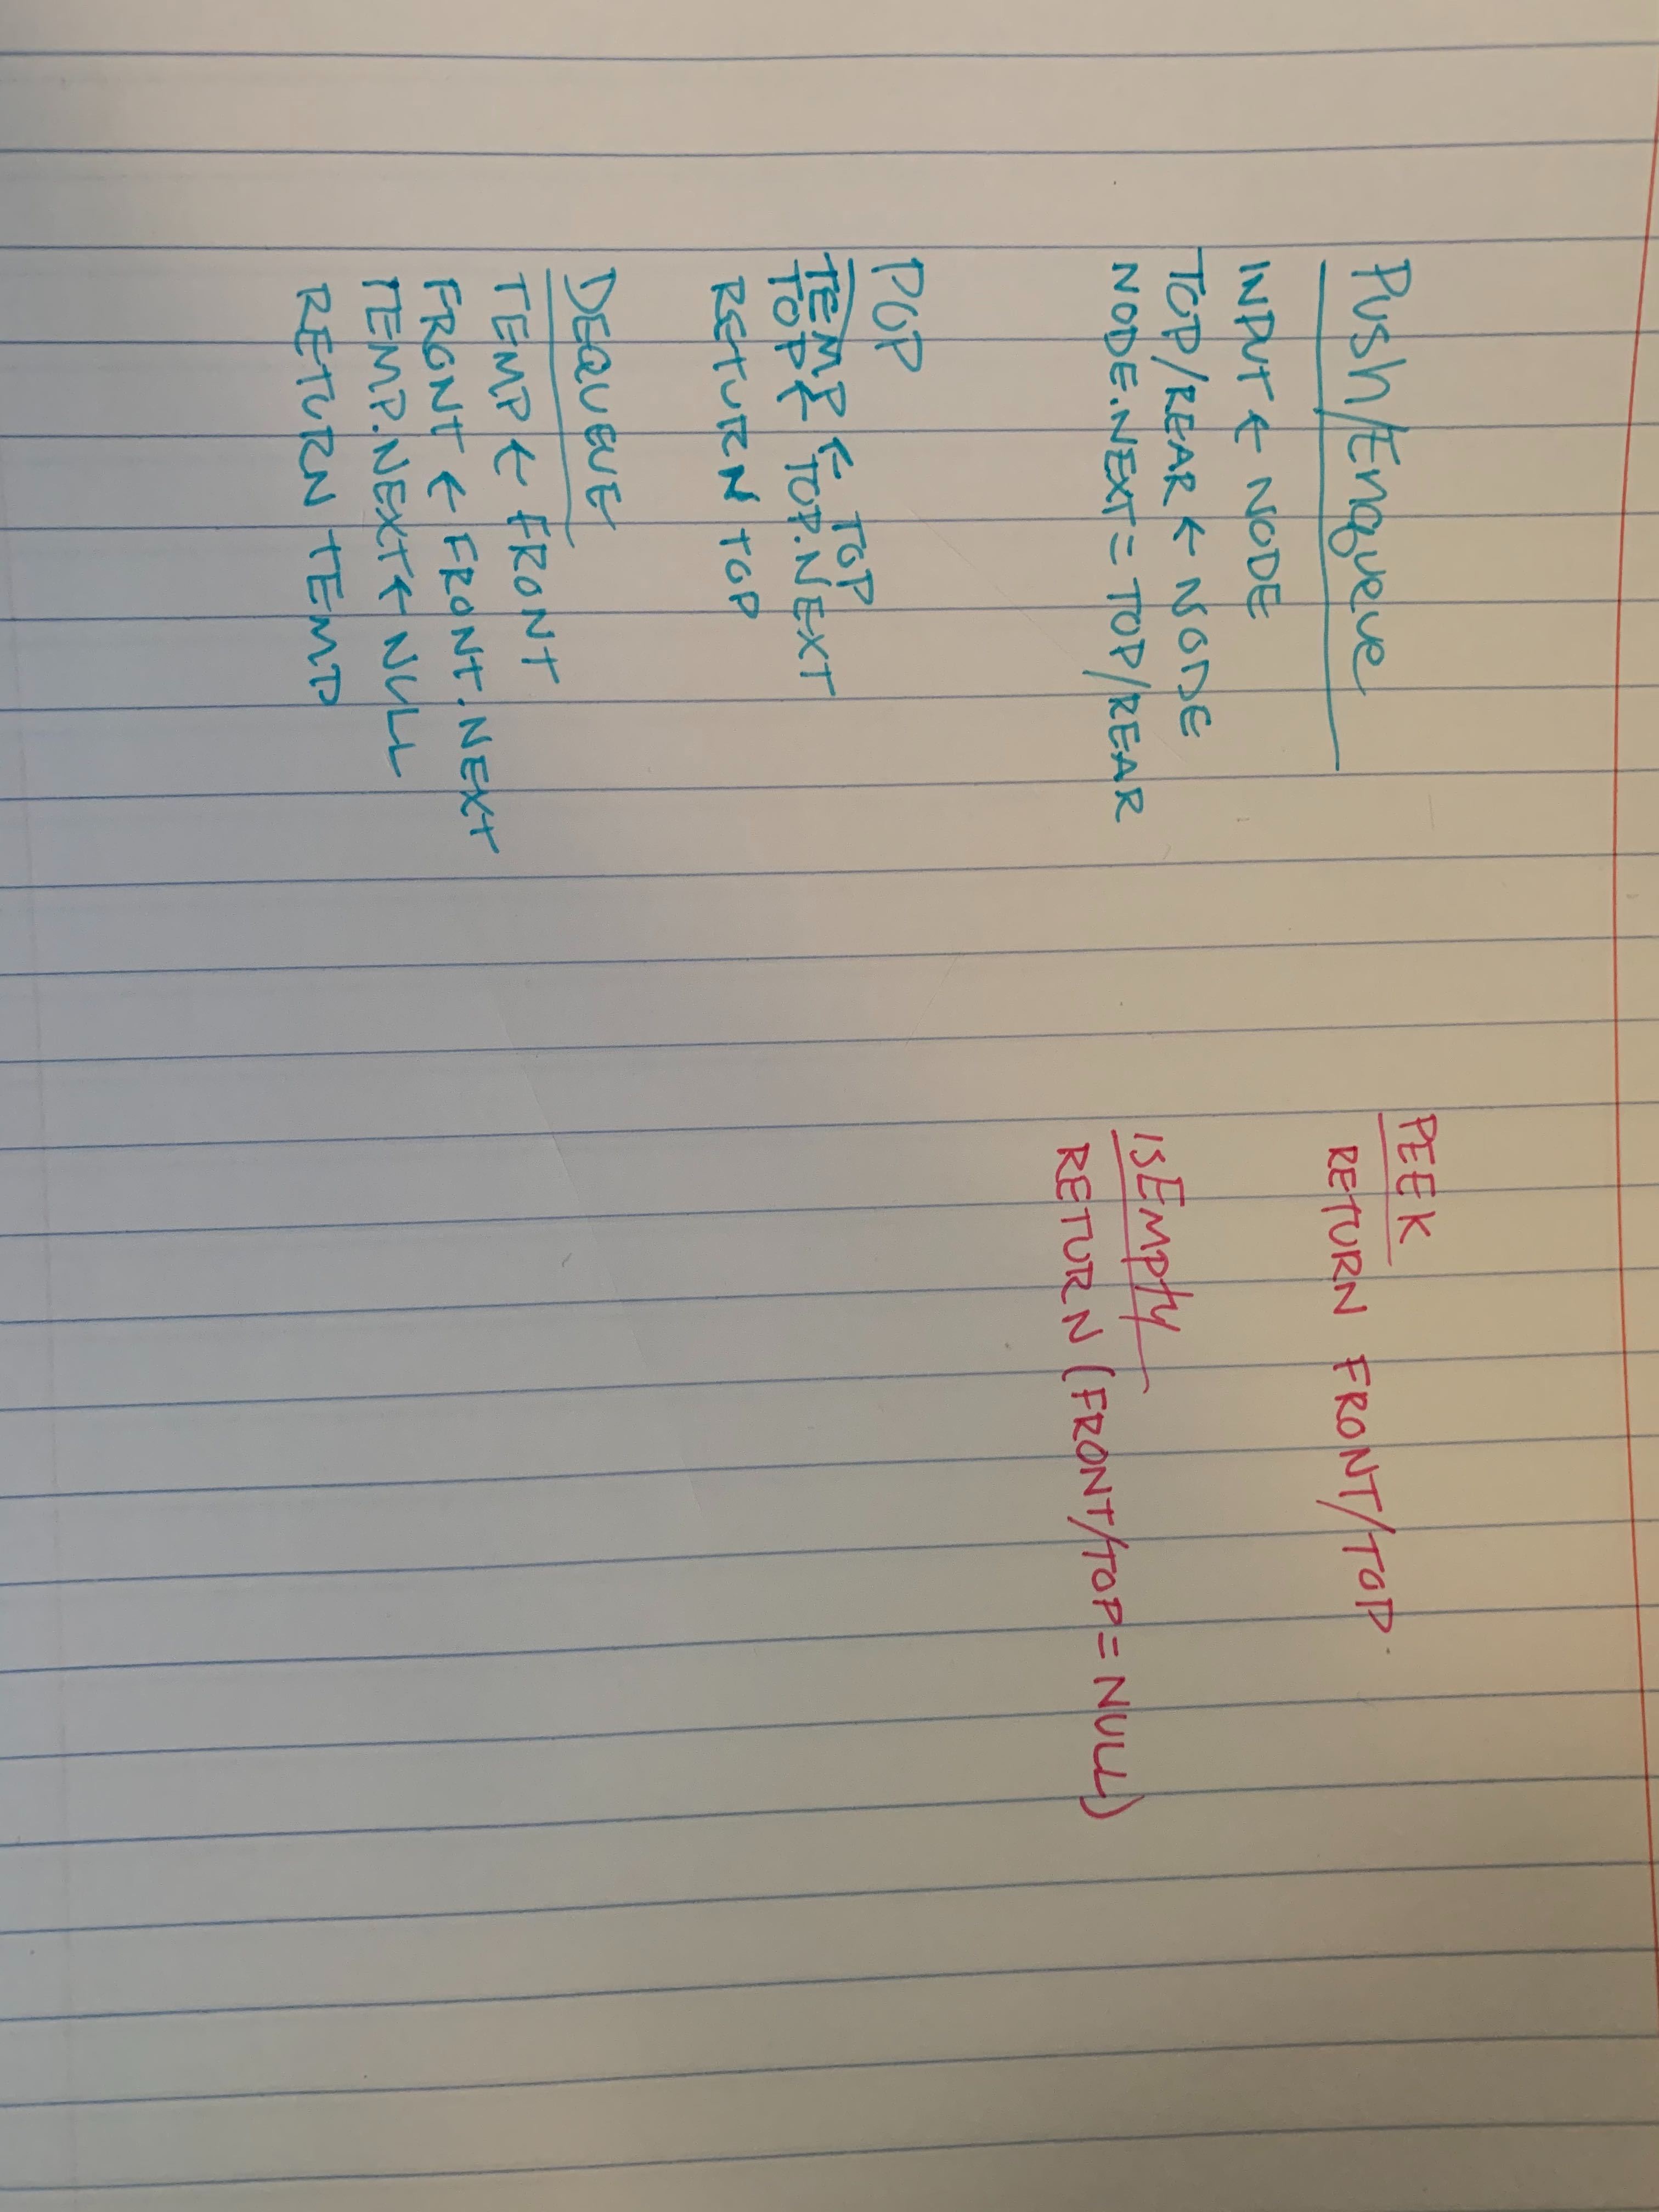 Push/Enqueue
INPUT ← NODE
TOP/REAR ← NODE
NODE.NEXT = TOP/REAR
POP
TEMP ← TOP
TOP ← TOP.NEXT
RETURN TOP
DEQUEUE
TEMP ← FRONT
FRONT ← FRONT.NEXT
TEMP.NEXT ← NULL
RETURN TEMP
PEEK
RETURN FRONT/TOP
isEmpty
RETURN (FRONT/TOP = NULL)